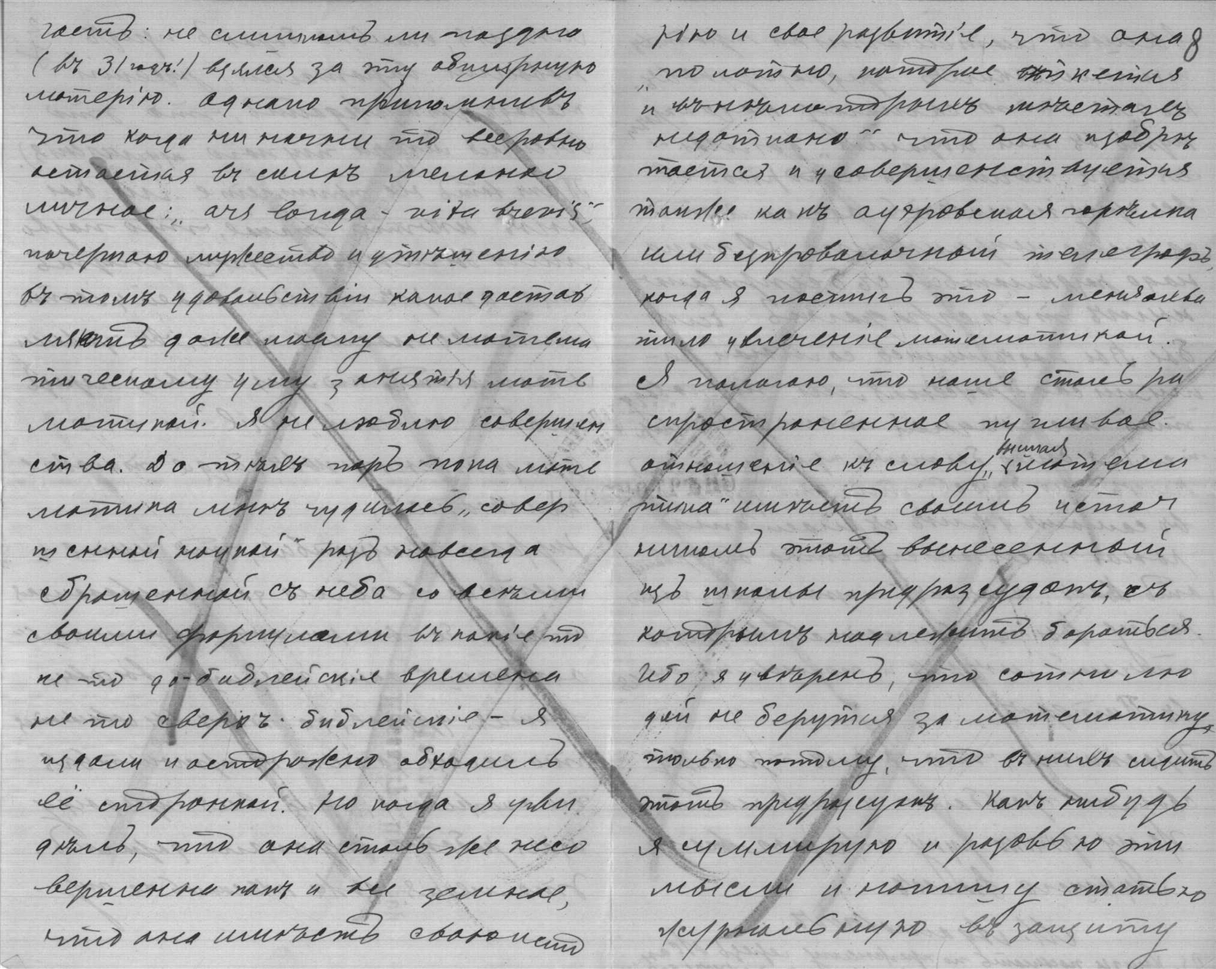 гаетъ: не слишкомъ ли поздно
(въ 31 годъ!) взялся за эту обширную
матерію. Однако припомнивъ
что когда ни начни то все равно
остается въ силѣ
личное: „ars longa - vita brevis“,
почерпаю мужество и утѣшенію
въ томъ удовольствіи какое достав
ляютъ даже моему не матема
тическому уму занятія мате
матикой. Я не люблю совершен
ства. До тѣхъ поръ пока мате
матика мнѣ чудилась „совер
шенной наукой“ разъ навсегда
сброшенной съ неба со всѣми
своими формулами въ какіе то
не то до-библейскіе времена
не то сверхъ-библейскіе – я
издали и осторожно обходилъ
её сторонкой. Но когда я уви
дѣлъ, что она столь же несо
вершенна какъ и все земное,
что она имѣетъ свою исто
рію и свое развитіе, что она
8
„полотно, которое
и въ нѣкоторыхъ мѣстахъ
недоткано“ что она изобрѣ
тается и усовершенствуется
также какъ ауэровская горѣлка
или безпроволочный телеграфъ,
когда я постигъ это – меня охва
тило увлеченіе математикой.
Я полагаю, что наше столь ра
спространенное пугливое
отношеніе къ слову „матема
тика“ имѣетъ своимъ источ
никомъ этотъ вынесенный
изъ школы предразсудокъ, съ
которымъ надлежитъ бороться.
Ибо я увѣренъ, что сотни лю
дей не берутся за математику,
только потому, что въ нихъ сидитъ
этотъ предразсудокъ. Какъ нибудь
я суммирую и разовью эти
мысли и напишу статью
журнальную въ защиту